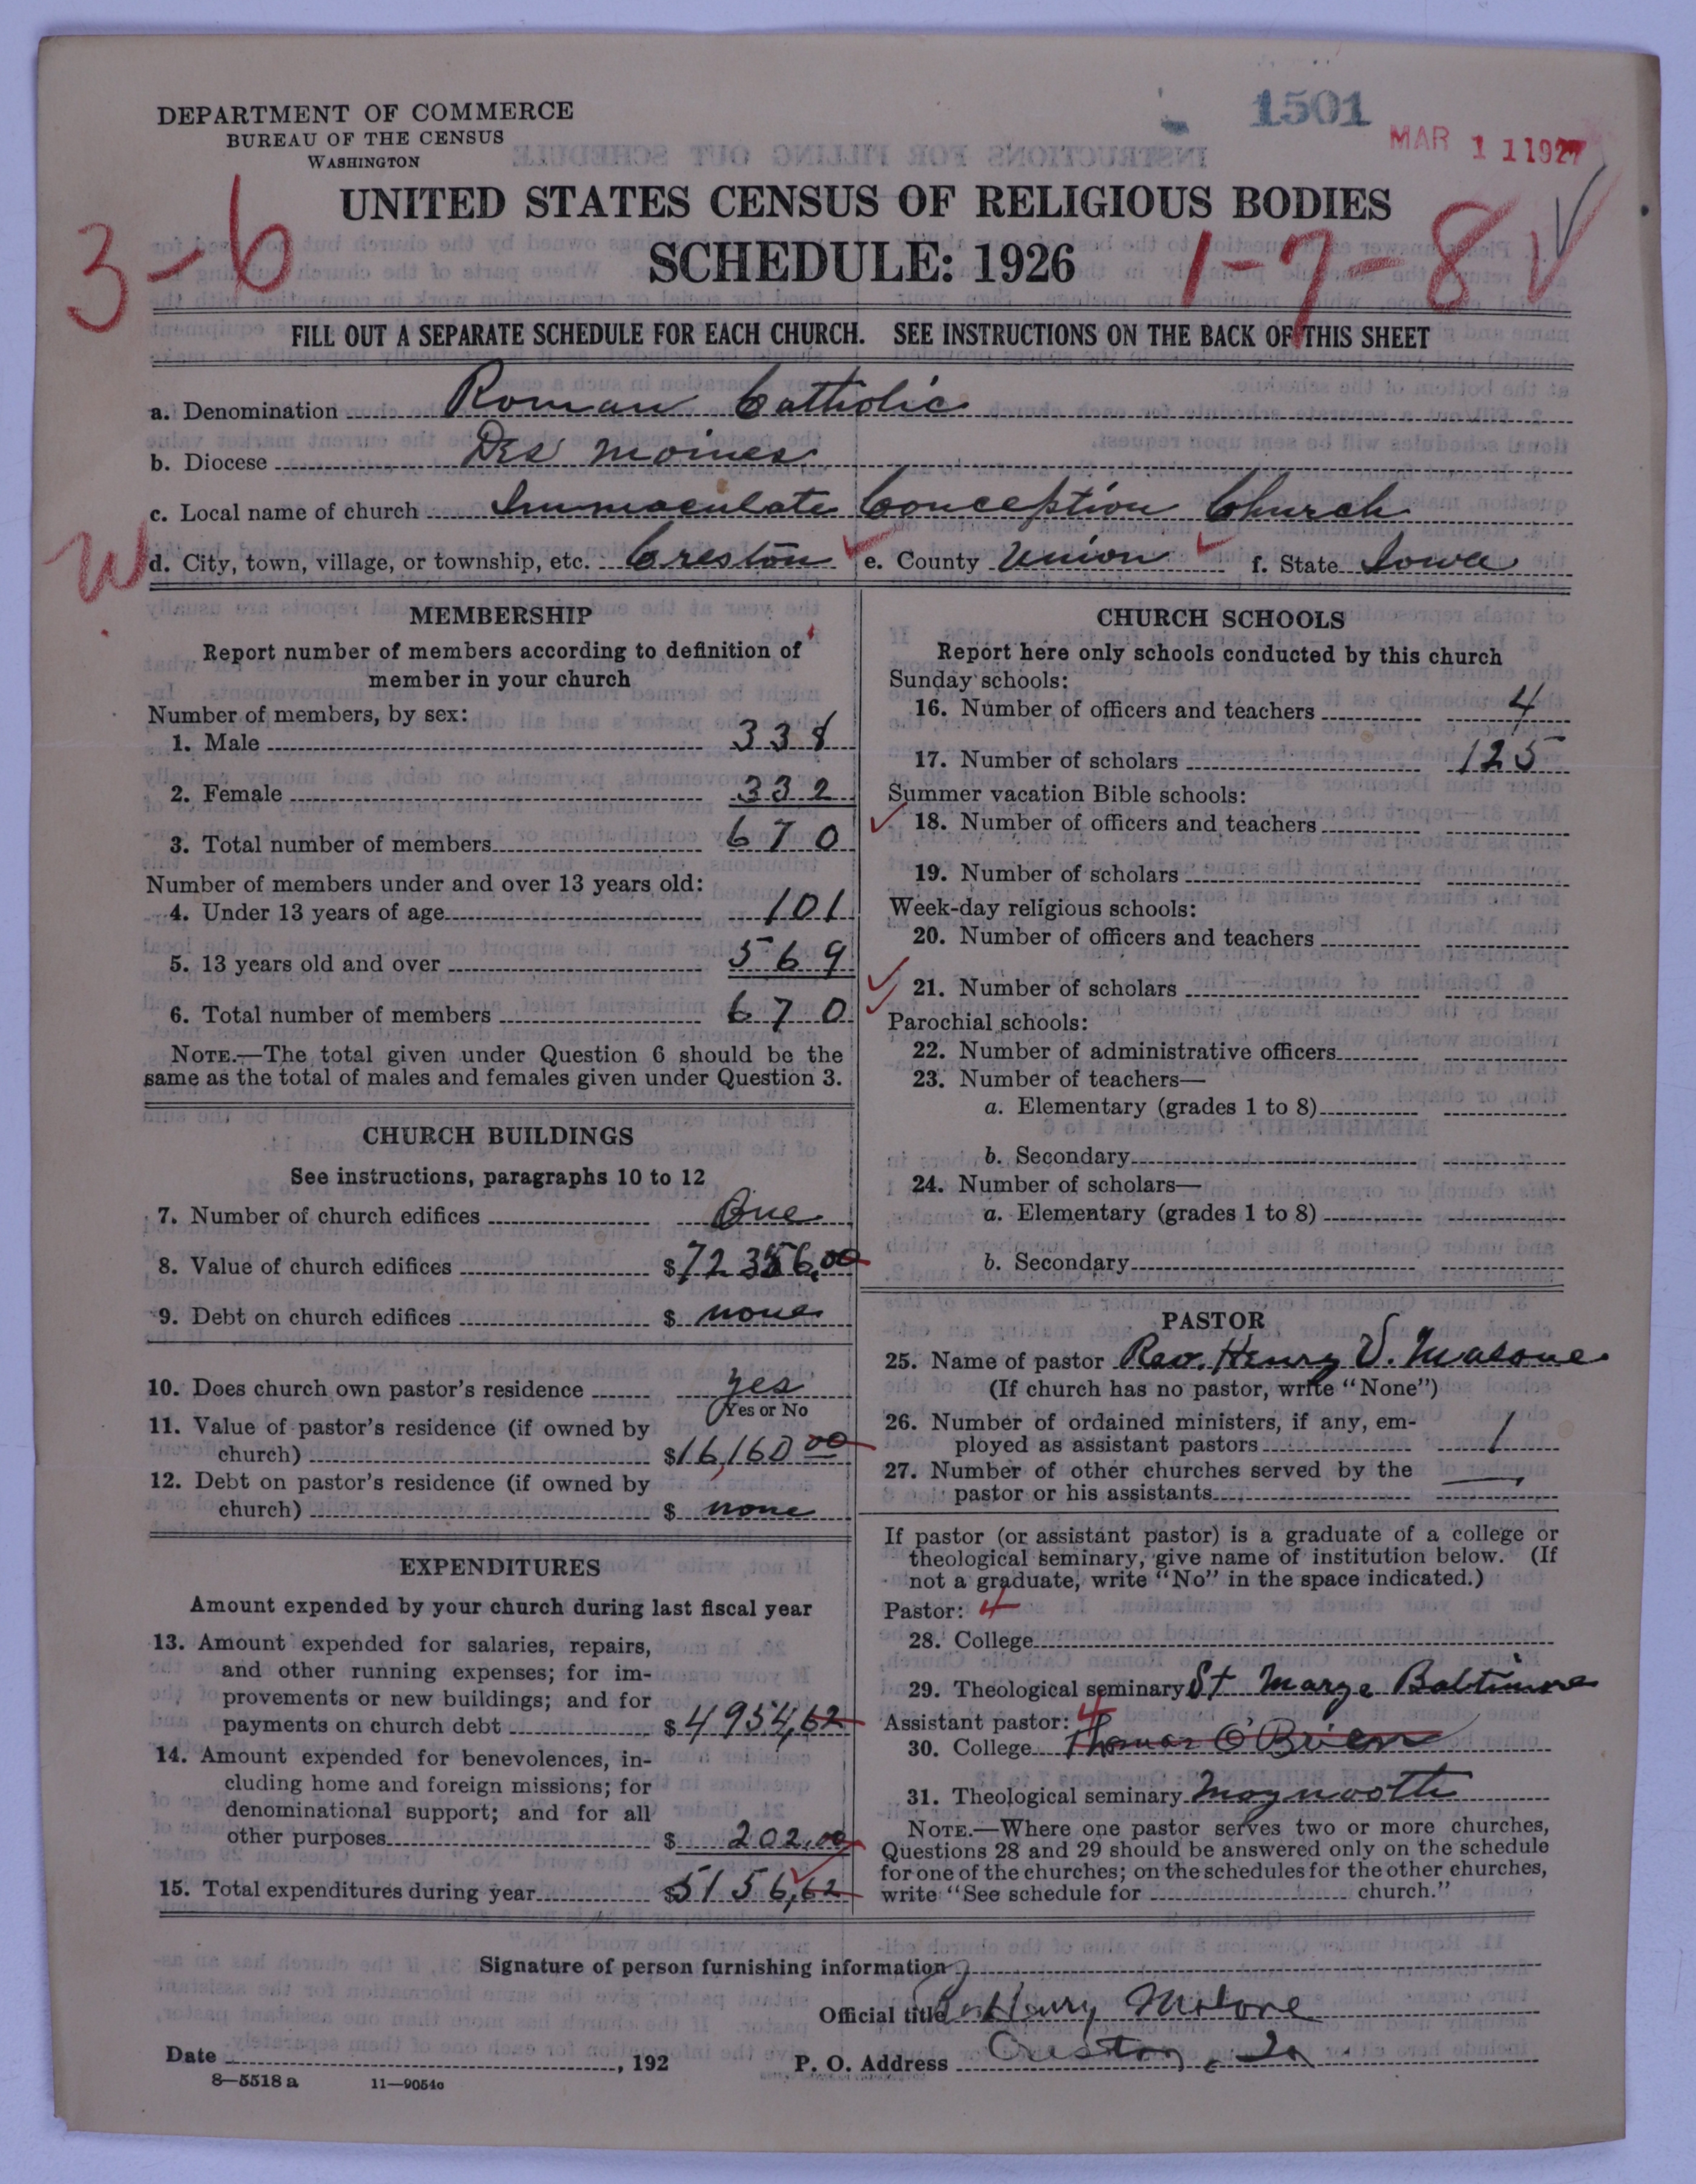 DEPARTMENT OF COMMERCE
BUREAU OF THE CENSUS
WASHINGTON
1501
MAR 11 1927
3-6
UNITED STATES CENSUS OF RELIGIOUS BODIES
SCHEDULE: 1926
1-7-8
FILL OUT A SEPARATE SCHEDULE FOR EACH CHURCH. SEE INSTRUCTIONS ON THE BACK OF THIS SHEET
a. Denomination Roman Catholic
b. Diocese Des Moines
c. Local name of church Immaculate Conception Church
W
d. City, town, village, or township, etc. Creston e. County Union f. State Iowa
MEMBERSHIP
Report number of members according to definition of
member in your church
Number of members, by sex:
1. Male 338
2. Female 332
3. Total number of members 670
Number of members under and over 13 years old:
4. Under 13 years of age 101
5. 13 years old and over 569
6. Total number of members 670
NOTE.—The total given under Question 6 should be the
same as the total of males and females given under Question 3.
CHURCH BUILDINGS
See instructions, paragraphs 10 to 12
7. Number of church edifices One
8. Value of church edifices $72,356.00
9. Debt on church edifices $ none
10. Does church own pastor's residence yes
(Yes or No
11. Value of pastor's residence (if owned by
church) $16,160 00
12. Debt on pastor's residence (if owned by
church) $ none
EXPENDITURES
Amount expended by your church during last fiscal year
13. Amount expended for salaries, repairs,
and other running expenses; for im-
provements or new buildings; and for
payments on church debt $4954,62
14. Amount expended for benevolences, in-
cluding home and foreign missions; for
denominational support; and for all
other purposes $ 202.00
15. Total expenditures during year $5156,62
CHURCH SCHOOLS
Report here only schools conducted by this church
Sunday schools:
16. Number of officers and teachers 4
17. Number of scholars 125
Summer vacation Bible schools:
18. Number of officers and teachers
19. Number of scholars
Week-day religious schools:
20. Number of officers and teachers
21. Number of scholars
Parochial schools:
22. Number of administrative officers
23. Number of teachers—
a. Elementary (grades 1 to 8)
b. Secondary
24. Number of scholars—
a. Elementary (grades 1 to 8)
b. Secondary
PASTOR
25. Name of pastor Rev. Henry V. Malone
(If church has no pastor, write "None")
26. Number of ordained ministers, if any, em-
ployed as assistant pastors 1
27. Number of other churches served by the
pastor or his assistants —
If pastor (or assistant pastor) is a graduate of a college or
theological seminary, give name of institution below. (If
not a graduate, write "No" in the space indicated.)
Pastor: 4
28. College
29. Theological seminary St Marys Baltimore
Assistant pastor: 4
30. College Thomas O'Brien
31. Theological seminary Maynooth
NOTE.—Where one pastor serves two or more churches,
Questions 28 and 29 should be answered only on the schedule
for one of the churches; on the schedules for the other churches,
write "See schedule for church."
Signature of person furnishing information
Official title Henry Malone
Date , 192 P. O. Address Creston, Ia
8—5518 a 11—9054c